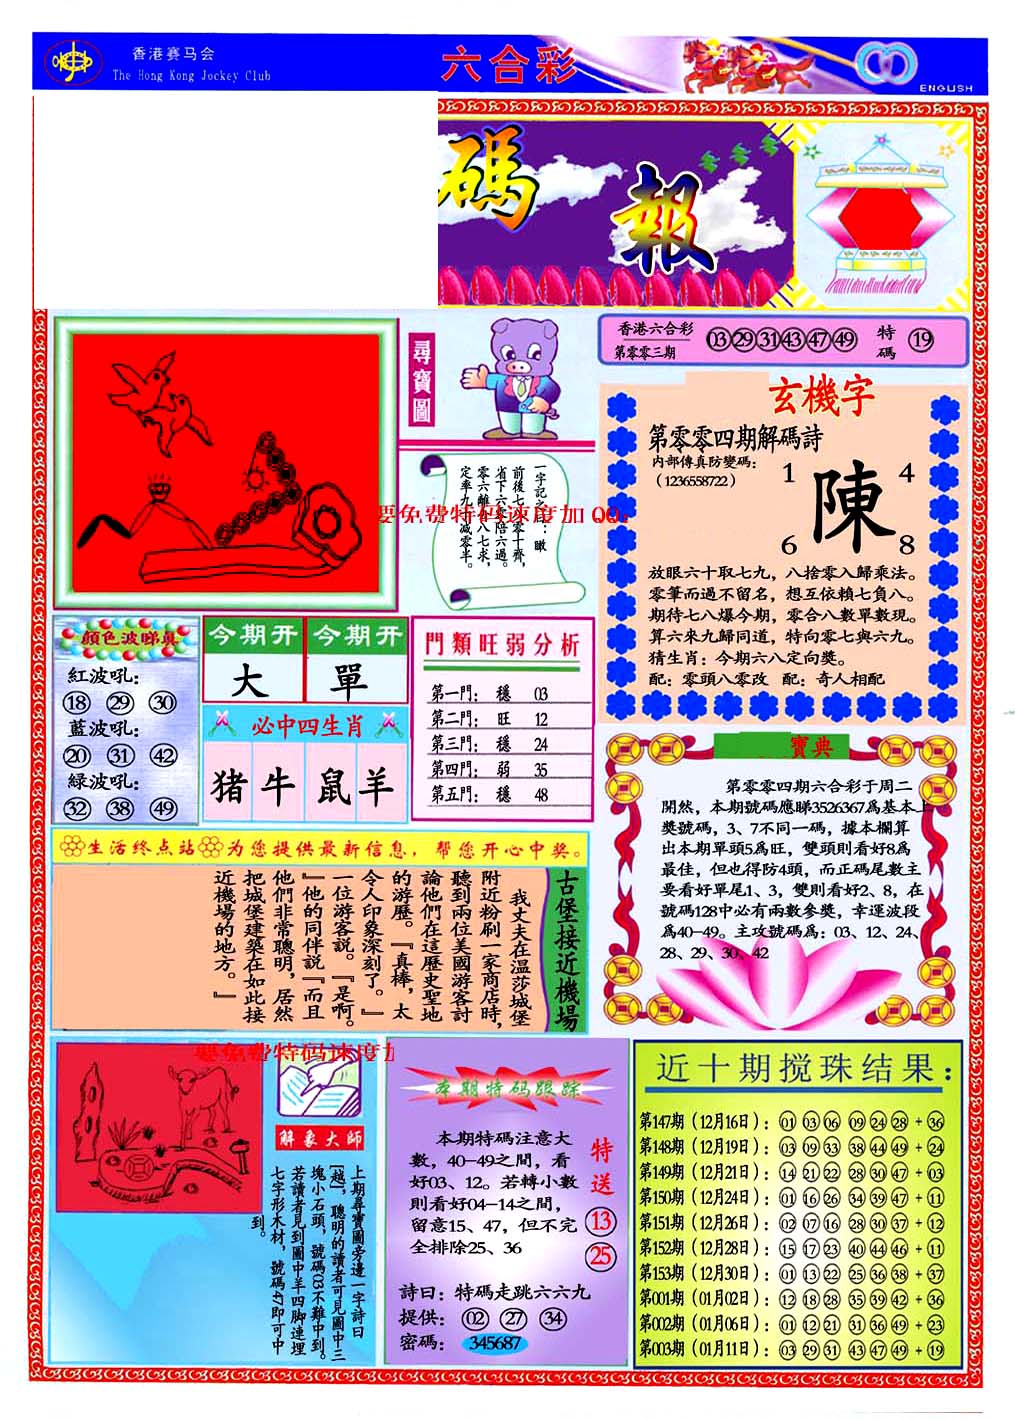 香港赛马会
The Hong Kong Jockey Club
六合彩
ENGLISH
碼 報
尋寶圖
香港六合彩
第零零三期
03 29 31 43 47 49 特碼 19
一字記之曰：瞰
前後七零零十齊，
省下六零陪六過。
零六離八八七求，
定率九七減零半。
要免费特码速度加 QQ:
玄機字
第零零四期解碼詩
内部傳真防變碼：
（1236558722）
1 4
陳
6 8
放眼六十取七九，八捨零入歸乘法。
零筆而過不留名，想互依賴七負八。
期待七八爆今期，零合八數單數現。
算六來九歸同道，特向零七與六九。
猜生肖：今期六八定向獎。
配：零頭八零改 配：奇人相配
顏色波睇真
紅波吼：
18 29 30
藍波吼：
20 31 42
緑波吼：
32 38 49
今期开 今期开
大 單
必中四生肖
猪 牛 鼠 羊
門類旺弱分析
第一門： 穩 03
第二門： 旺 12
第三門： 穩 24
第四門： 弱 35
第五門： 穩 48
寶典
第零零四期六合彩于周二
開然，本期號碼應睇3526367爲基本上
獎號碼，3、7不同一碼，據本欄算
出本期單頭5爲旺，雙頭則看好8爲
最佳，但也得防4頭，而正碼尾數主
要看好單尾1、3，雙則看好2、8，在
號碼128中必有兩數參獎，幸運波段
爲40-49。主攻號碼爲：03、12、24、
28、29、30、42
生活终点站 为您提供最新信息，帮您开心中奖。
古堡接近機場
我丈夫在温莎城堡
附近粉刷一家商店時，
聽到兩位美國游客討
論他們在這歷史聖地
的游歷。『真棒，太
令人印象深刻了。』
一位游客説。『是啊。
』他的同伴説『而且
他們非常聰明，居然
把城堡建築在如此接
近機場的地方。』
要免费特码速度加
解象大師
上期尋寶圖旁邊一字詩曰
[越]，聰明的讀者可見圖中三
塊小石頭，號碼03不難中到。
若讀者見到圖中羊四脚連埋
七字形木材，號碼47即可中
到。
本期特码跟踪
本期特碼注意大
數，40-49之間，看
好03、12。若轉小數
則看好04-14之間，
留意15、47，但不完
全排除25、36
特送
13
25
詩曰：特碼走跳六六九
提供： 02 27 34
密碼： 345687
近十期搅珠结果：
第147期（12月16日）：01 03 06 09 24 28 + 36
第148期（12月19日）：03 09 33 38 44 49 + 24
第149期（12月21日）：14 21 22 28 30 47 + 03
第150期（12月24日）：01 16 26 34 39 47 + 11
第151期（12月26日）：02 07 16 28 30 37 + 12
第152期（12月28日）：15 17 23 40 44 46 + 11
第153期（12月30日）：01 13 22 25 36 38 + 37
第001期（01月02日）：12 18 28 35 39 42 + 36
第002期（01月06日）：01 12 21 31 36 49 + 23
第003期（01月11日）：03 29 31 43 47 49 + 19